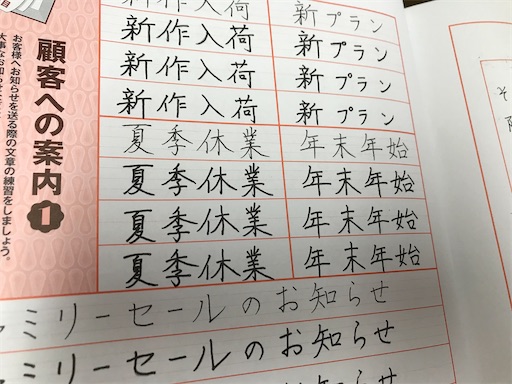 顧客への案内 1
お客様へお知らせを送る際の文章の練習をしましょう。
新作入荷 新プラン
新作入荷 新プラン
新作入荷 新プラン
新作入荷 新プラン
夏季休業 年末年始
夏季休業 年末年始
夏季休業 年末年始
夏季休業 年末年始
ミリーセールのお知らせ
ミリーセールのお知らせ
お知らせ